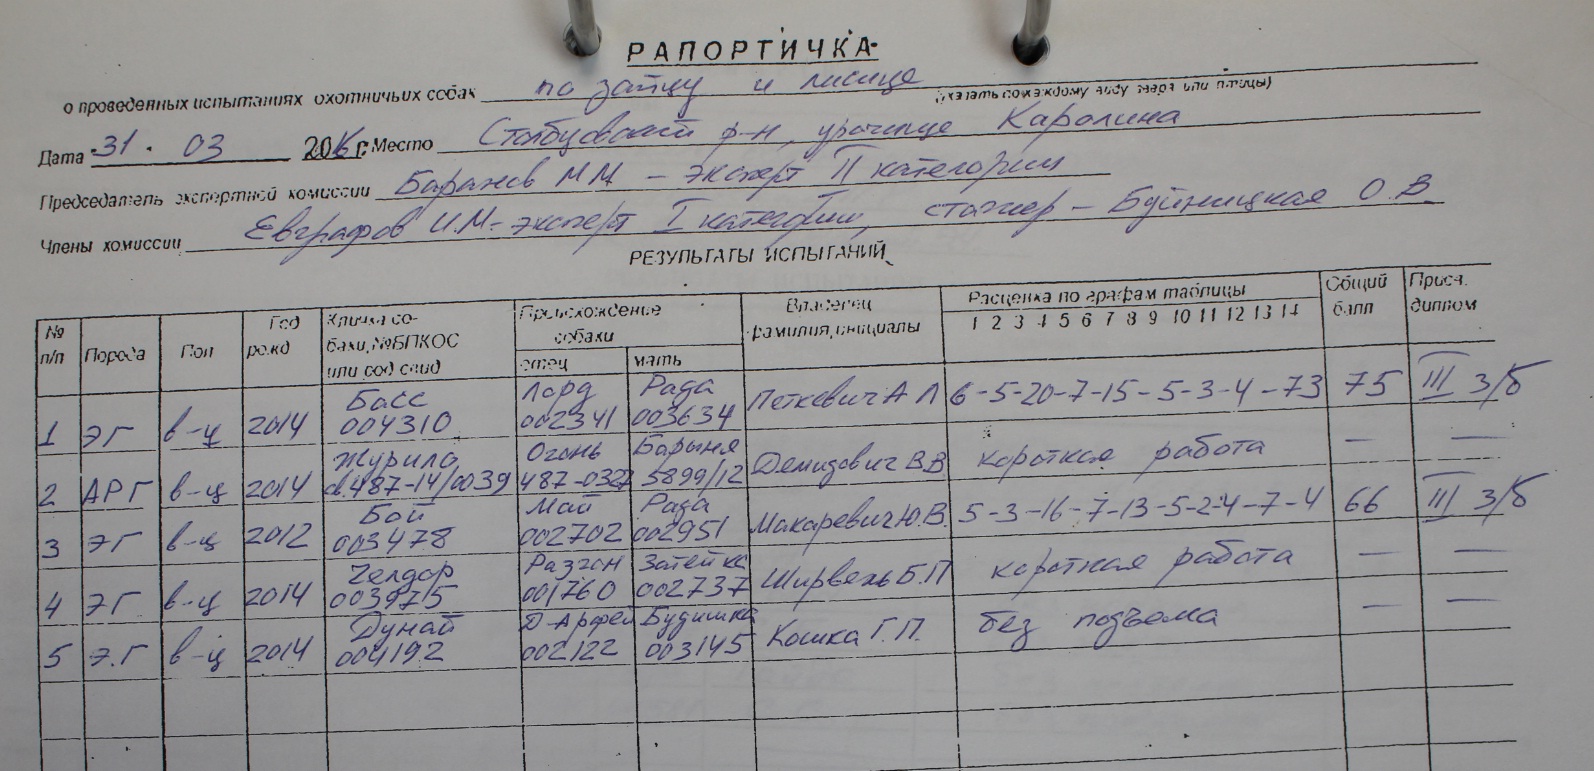 РАПОРТИЧКА
о проведенных испытаниях охотничьих собак по зайцу и лисице
(указать по каждому виду зверя или птицы)
Дата 31. 03 2016 г. Место Столбцовский р-н, урочище Каролина
Председатель экспертной комиссии Баранов М М - эксперт II категории
Члены комиссии Евграфов И.М - эксперт I категории, стажер - Буйницкая О. В.
РЕЗУЛЬТАТЫ ИСПЫТАНИЙ
№ п/п Порода Пол Год рожд Кличка собаки, №БПКОС или род свид Происхождение собаки отец мать Владелец фамилия, инициалы Расценка по графам таблицы 1 2 3 4 5 6 7 8 9 10 11 12 13 14 Общий балл Присв. диплом
1 ЭГ в-ц 2014 Басс 004310 Лорд 002341 Рада 003634 Петкевич А Л 6-5-20-7-15-5-3-4-73 75 III з/б
2 АРГ в-ц 2014 Журило св.487-14/0039 Огонь 487-0327 Барыня 5899/12 Демидович В.В короткая работа — —
3 ЭГ в-ц 2012 Бой 003478 Май 002702 Рада 002951 Макаревич Ю.В. 5-3-16-7-13-5-2-4-7-4 66 III з/б
4 ЭГ в-ц 2014 Челдор 003975 Разгон 001760 Затейка 002737 Ширвель Б.П короткая работа — —
5 Э.Г в-ц 2014 Дунай 004192 Д-Арфей 002122 Будишка 003145 Кошка Г.П. без подъема — —